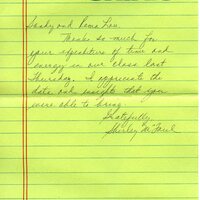 Sandy and Rema Lou
Thanks so much for
your expenditure of time and
energy in our class last
Thursday. I appreciate the
data and insights that you
were able to bring.
Gratefully,
Shirley